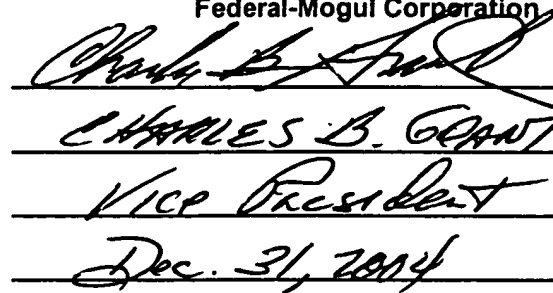 Federal-Mogul Corporation
Charles B. Grant
CHARLES B. GRANT
Vice President
Dec. 31, 2004